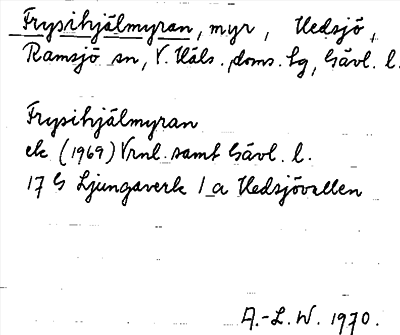 Frysihjälmyran, myr, Hedsjö,
Ramsjö sn, V. Häls. doms. sg, Gävl. l.
Frysihjälmyran
ek (1969) Vrnl. samt Gävl. l.
17 G Ljungaverk 1_a Hedsjövallen
A.-L. W. 1970.